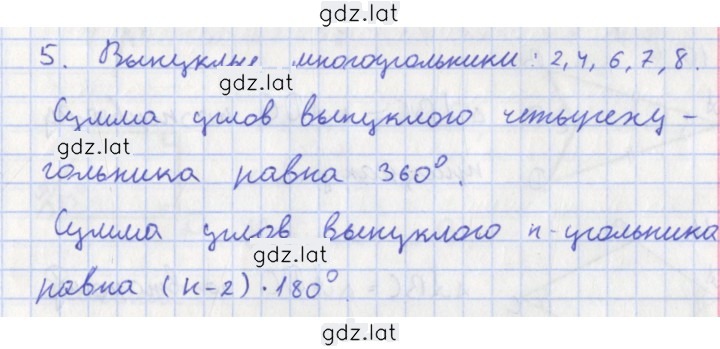 gdz.lat
5. Выпуклые многоугольники: 2, 4, 6, 7, 8.
gdz.lat
Сумма углов выпуклого четыреху-
gdz.lat
гольника равна 360°.
gdz.lat
Сумма углов выпуклого n-угольника
gdz.lat
равна (n-2)·180°
gdz.lat